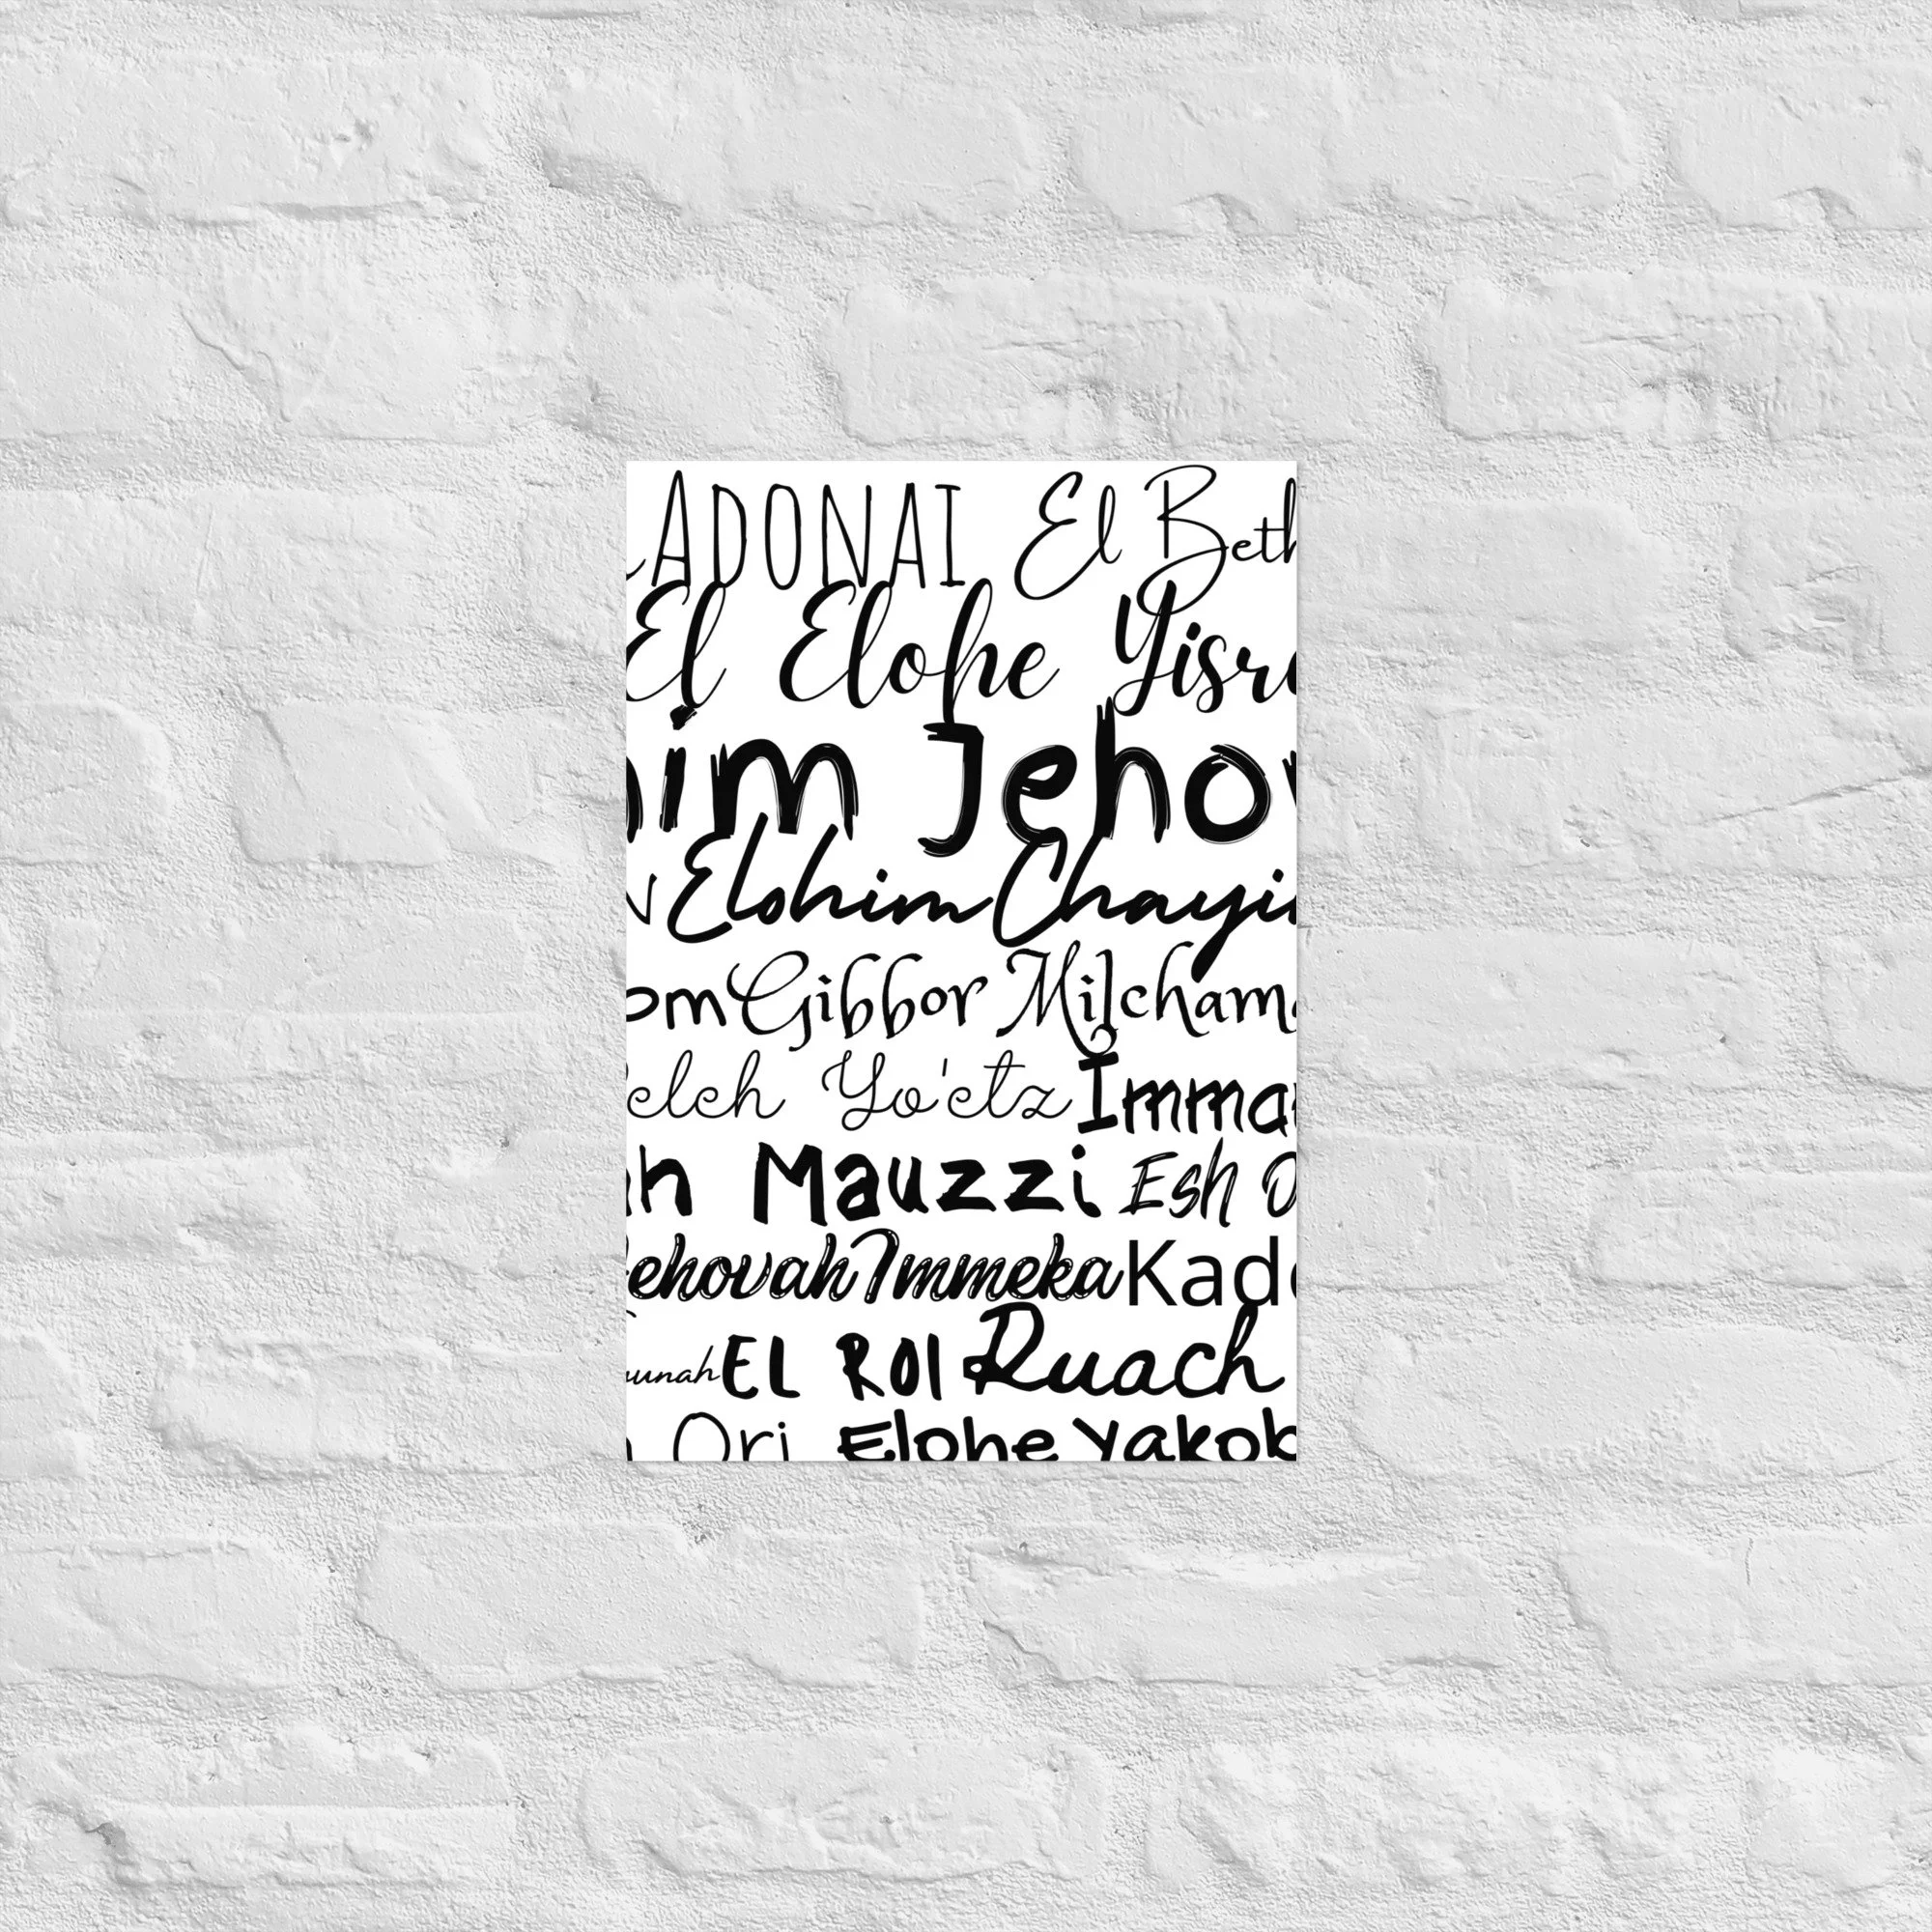 ADONAI El Beth
El Elohe Yisr
im Jehov
Elohim Chayi
om Gibbor Milchama
elech Yo'etz Imma
ah Mauzzi Esh O
ehovah Immeka Kado
unah EL ROI Ruach
Ori Elohe Yakob